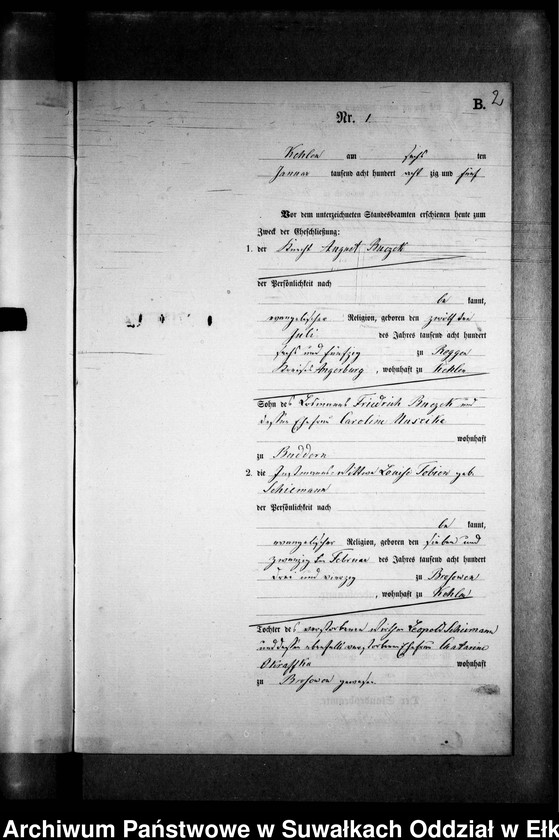 B. 2
Nr. 1
Kehlen am sechs ten
Januar tausend acht hundert acht zig und fünf
Vor dem unterzeichneten Standesbeamten erschienen heute zum
Zweck der Eheschließung:
1. der Knecht August Buczek
der Persönlichkeit nach
be kannt,
evangelischer Religion, geboren den zwölften
Juli des Jahres tausend acht hundert
sechs und fünfzig zu Roggen
Kreises Angerburg, wohnhaft zu Kehlen
Sohn des Losmanns Friedrich Buczek und
dessen Ehefrau Caroline
wohnhaft
zu Buddern
2. die Instmanns-Wittwe Louise Tobien geb.
Schiemann
der Persönlichkeit nach
be kannt,
evangelischer Religion, geboren den sieben und
zwanzigsten Februar des Jahres tausend acht hundert
drei und vierzig zu Brosowen
, wohnhaft zu Kehlen
Tochter des verstorbenen Leopold Schiemann
und dessen ebenfalls verstorbenen Ehefrau
wohnhaft
zu Brosowen gewesen
Archiwum Państwowe w Suwałkach Oddział w Ełk